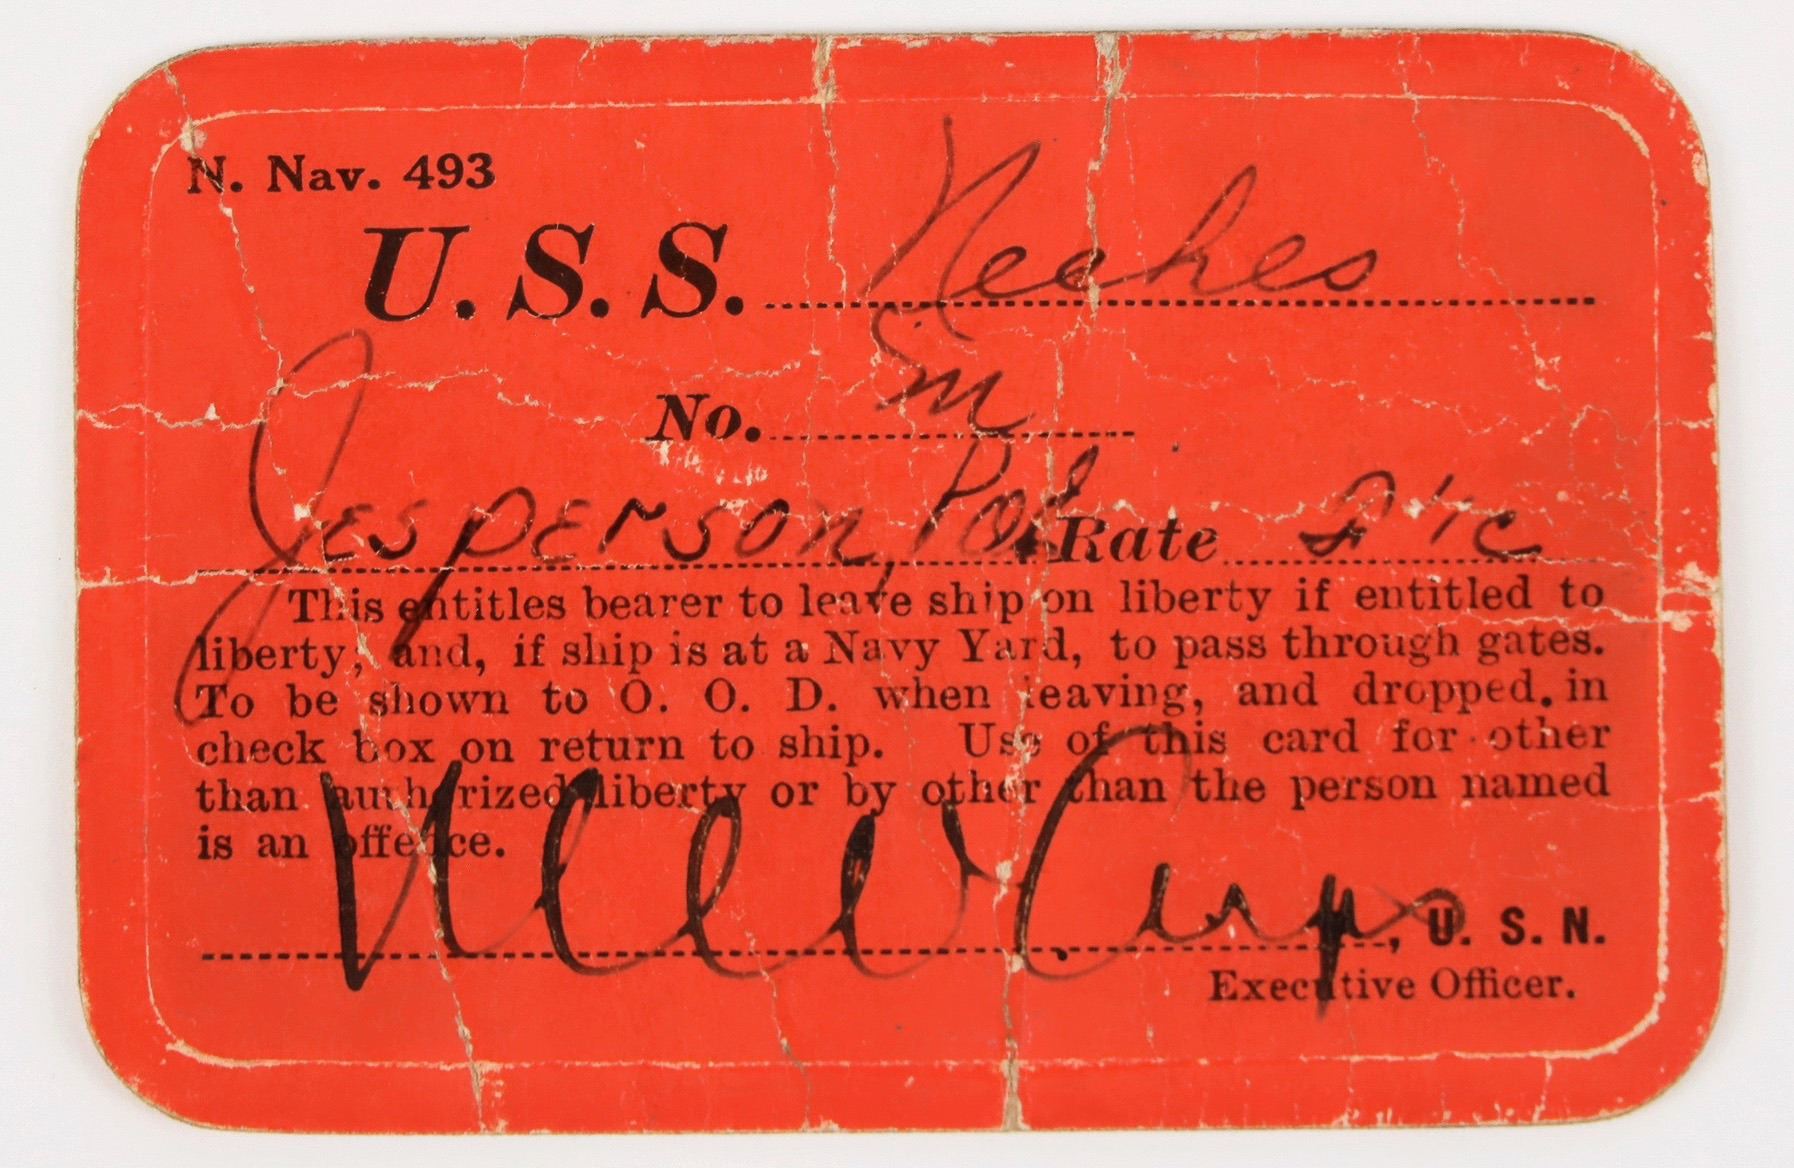 N. Nav. 493
U. S. S. Neches
No. M
Jesperson, Rate
This entitles bearer to leave ship on liberty if entitled to
liberty, and, if ship is at a Navy Yard, to pass through gates.
To be shown to O. O. D. when leaving, and dropped in
check box on return to ship. Use of this card for other
than authorized liberty or by other than the person named
is an offence.
, U. S. N.
Executive Officer.